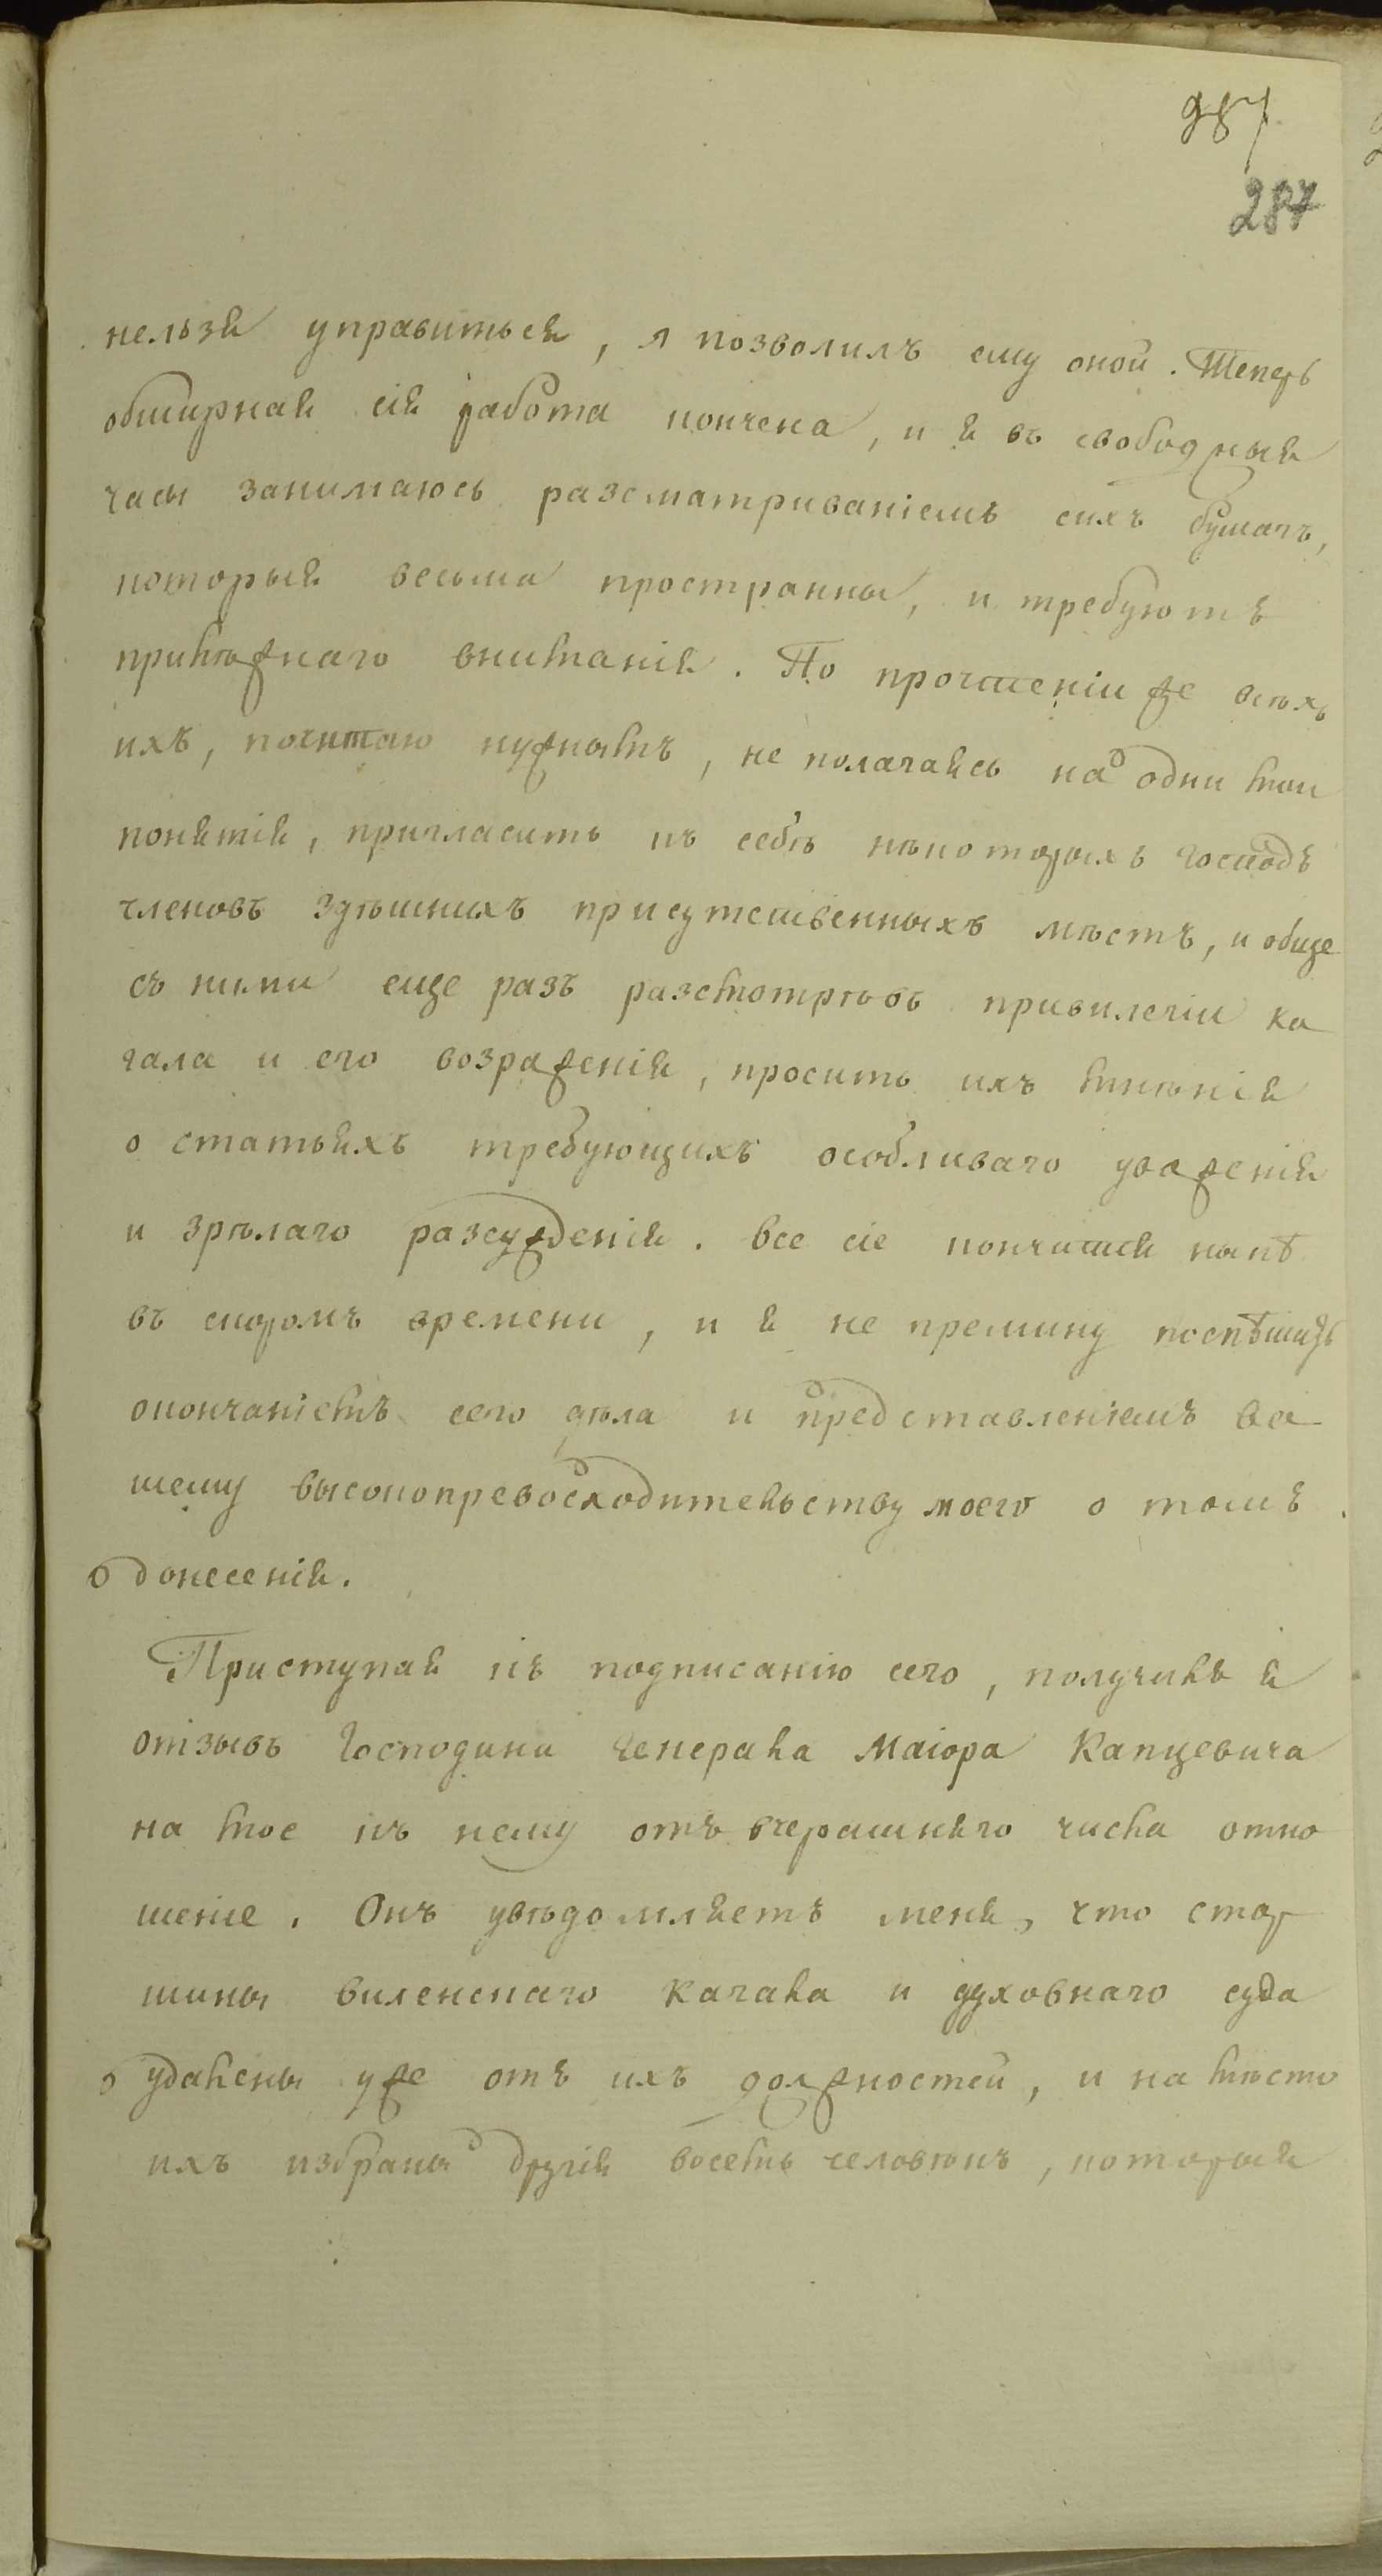 287
287
нельзя управиться, я позволилъ ему оной. Теперь
обширная сія работа кончена, и я въ свободныя
часы занимаюсь разсматриваніемъ сихъ бумагъ,
которыя весьма пространны, и требуютъ
прилѣжнаго вниманія. По прочтеніи же всѣхъ
ихъ, почитаю нужнымъ, не полагаясь на одни мои
понятія, пригласить къ себѣ нѣкоторыхъ господъ
членовъ здѣшнихъ присутственныхъ мѣстъ, и обще
съ ними еще разъ разсмотрѣвъ привилегіи ка
гала и его возраженія, просить ихъ мнѣнія
о статьяхъ требующихъ особливаго уваженія
и зрѣлаго разсужденія. Все сіе кончится
въ скоромъ времени, и я не премину поспѣшить
окончаніемъ сего дѣла и представленіемъ ва
шему высокопревосходительству моего о томъ
донесенія.
Приступая къ подписанію сего, получилъ я
отзывъ Господина Генерала Маіора Капцевича
на мое къ нему отъ вчерашняго числа отно
шеніе. Онъ увѣдомляетъ меня, что стар
шины виленскаго Кагала и духовнаго суда
удалены уже отъ ихъ должностей, и на мѣсто
ихъ избраны другія восемь человѣкъ, которыя